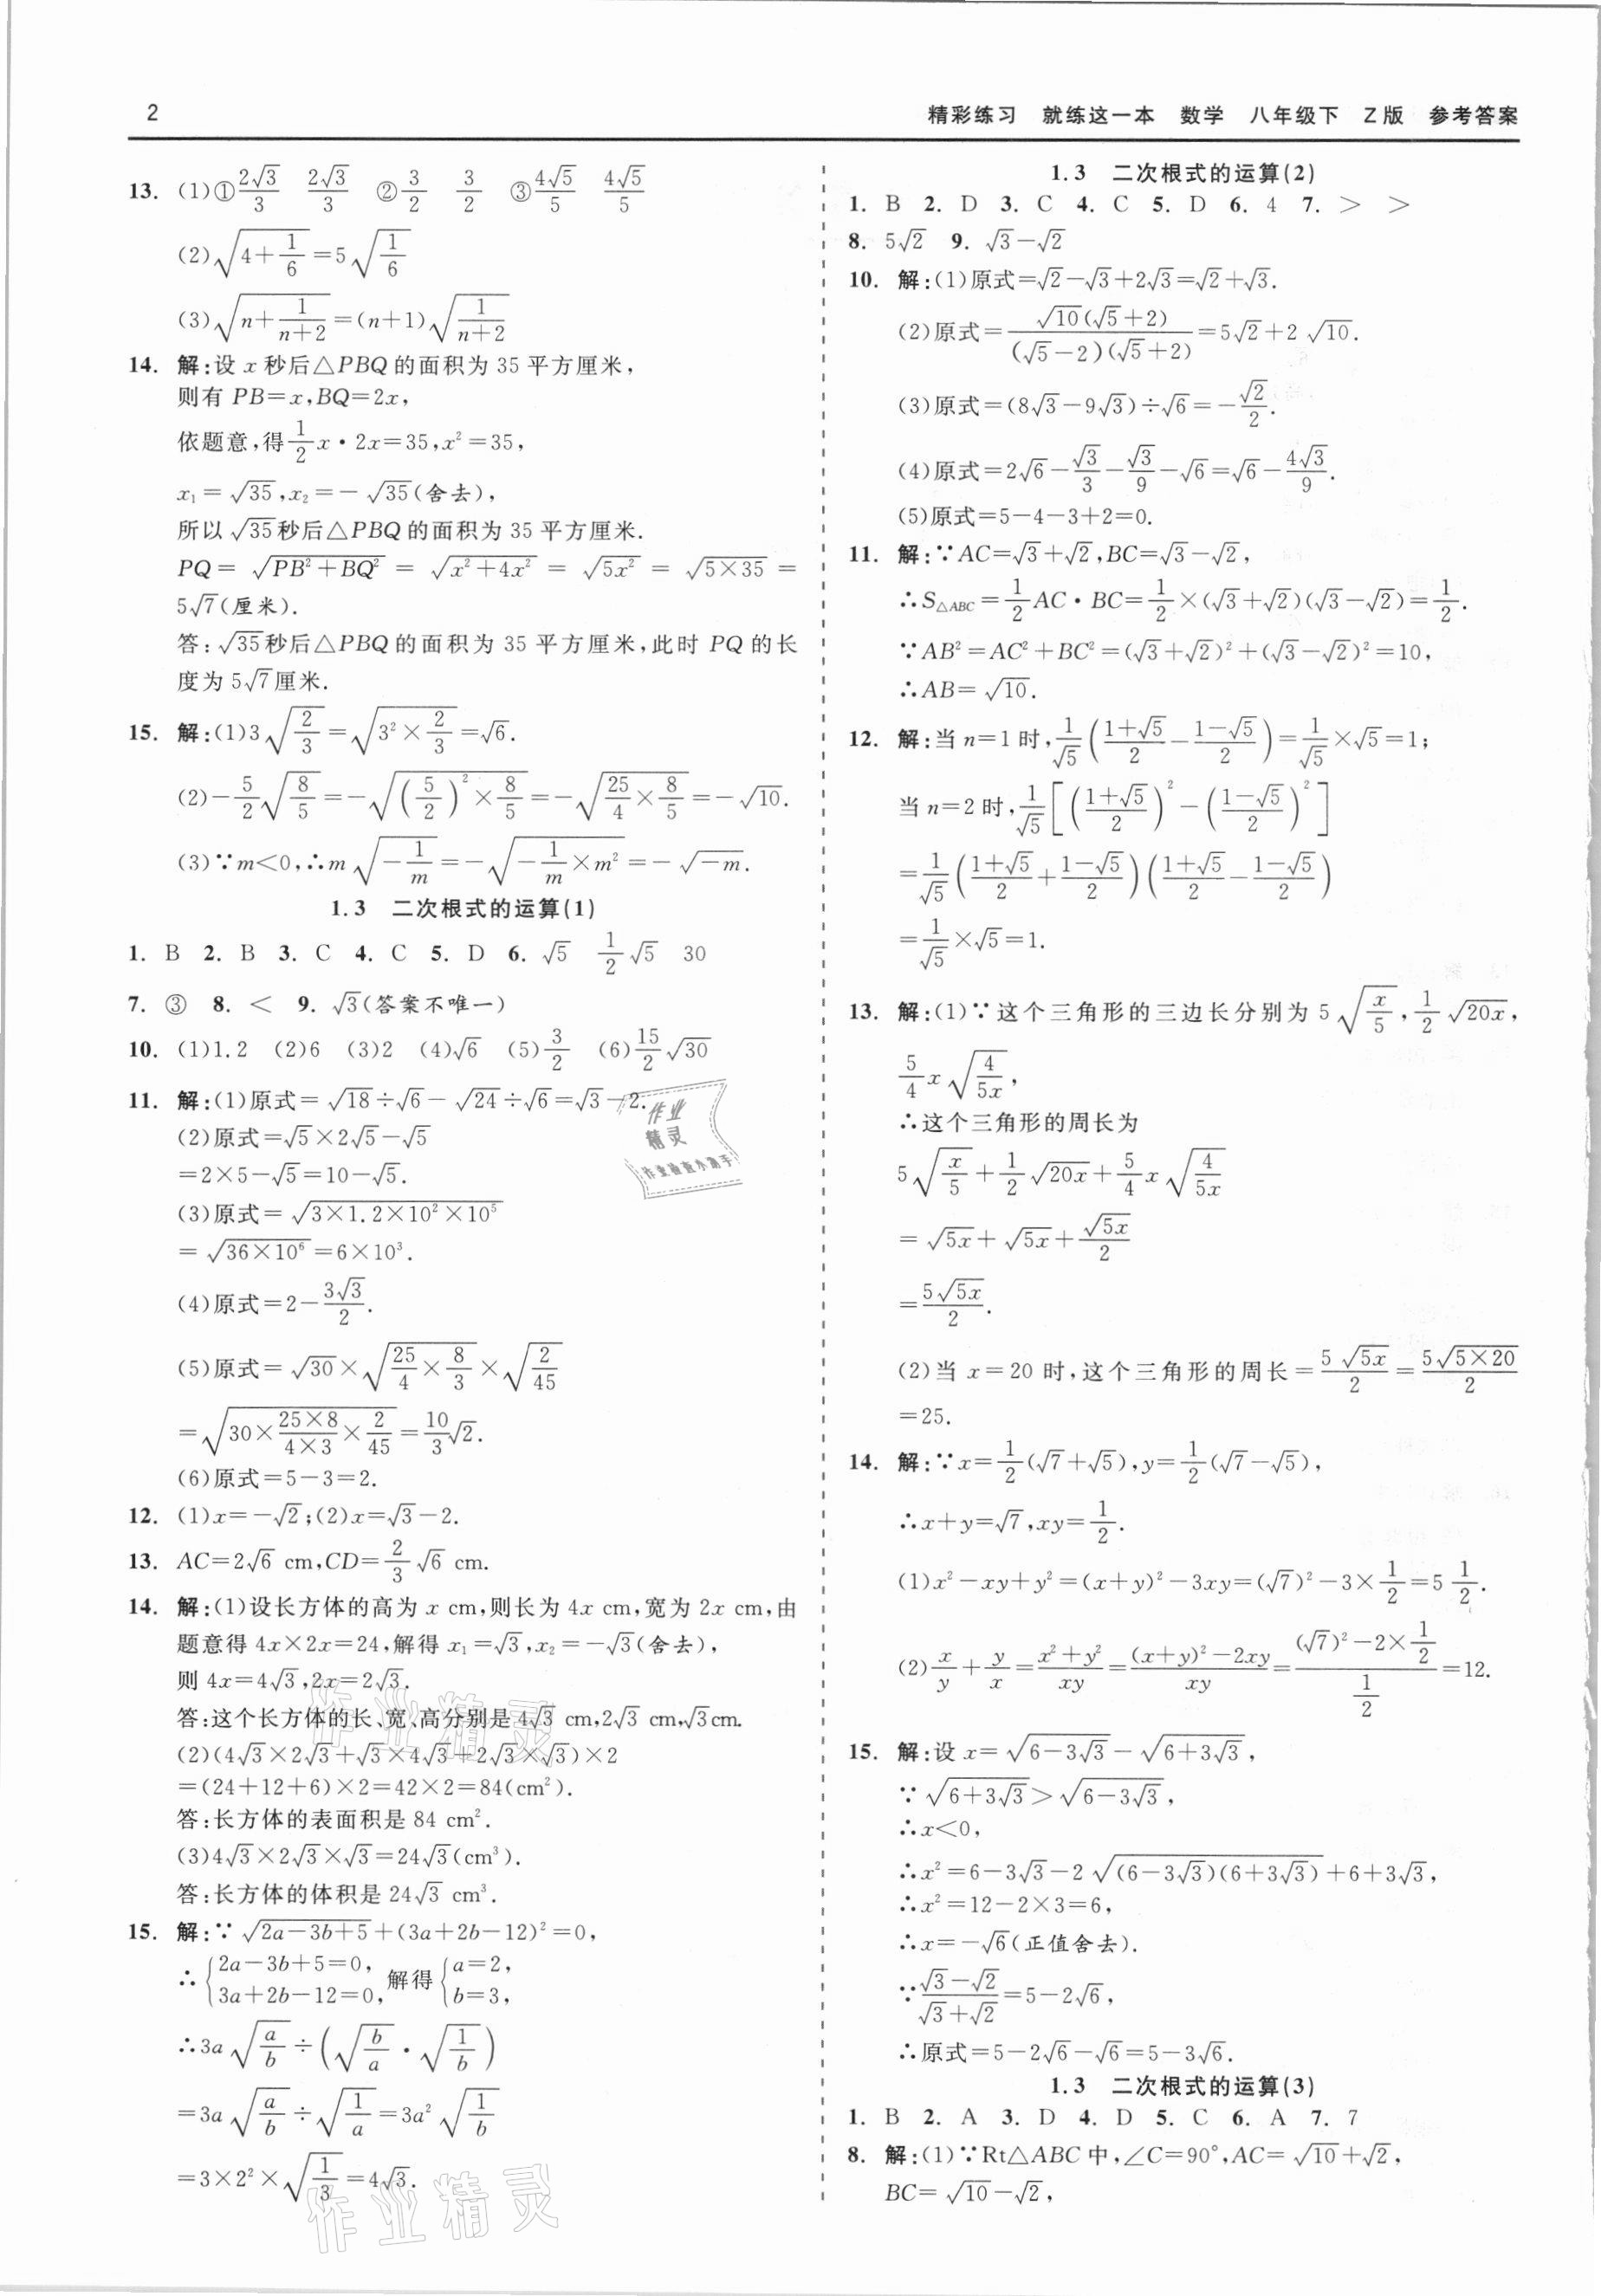 2
精彩练习 就练这一本 数学 八年级下 Z版 参考答案
13. (1)①2√3/3 2√3/3 ②3/2 3/2 ③4√5/5 4√5/5
(2)√(4+1/6)=5√(1/6)
(3)√(n+1/(n+2))=(n+1)√(1/(n+2))
14. 解:设 x 秒后△PBQ 的面积为 35 平方厘米,
则有 PB=x,BQ=2x,
依题意,得1/2x·2x=35,x²=35,
x₁=√35,x₂=-√35(舍去),
所以√35秒后△PBQ 的面积为 35 平方厘米.
PQ=√(PB²+BQ²)=√(x²+4x²)=√(5x²)=√(5×35)=
5√7(厘米).
答:√35秒后△PBQ 的面积为 35 平方厘米,此时 PQ 的长
度为 5√7厘米.
15. 解:(1)3√(2/3)=√(3²×2/3)=√6.
(2)-5/2√(8/5)=-√((5/2)²×8/5)=-√(25/4×8/5)=-√10.
(3)∵m<0,∴m√(-1/m)=-√(-1/m×m²)=-√(-m).
1.3 二次根式的运算(1)
1. B 2. B 3. C 4. C 5. D 6. √5 1/2√5 30
7. ③ 8. < 9. √3(答案不唯一)
10. (1)1.2 (2)6 (3)2 (4)√6 (5)3/2 (6)15/2√30
11. 解:(1)原式=√18÷√6-√24÷√6=√3-2.
(2)原式=√5×2√5-√5
=2×5-√5=10-√5.
(3)原式=√(3×1.2×10²×10⁵)
=√(36×10⁶)=6×10³.
(4)原式=2-3√3/2.
(5)原式=√30×√(25/4×8/3)×√(2/45)
=√(30×(25×8)/(4×3)×2/45)=10/3√2.
(6)原式=5-3=2.
12. (1)x=-√2;(2)x=√3-2.
13. AC=2√6 cm,CD=2/3√6 cm.
14. 解:(1)设长方体的高为 x cm,则长为 4x cm,宽为 2x cm,由
题意得 4x×2x=24,解得 x₁=√3,x₂=-√3(舍去),
则 4x=4√3,2x=2√3.
答:这个长方体的长、宽、高分别是 4√3 cm,2√3 cm,√3cm.
(2)(4√3×2√3+√3×4√3+2√3×√3)×2
=(24+12+6)×2=42×2=84(cm²).
答:长方体的表面积是 84 cm².
(3)4√3×2√3×√3=24√3(cm³).
答:长方体的体积是 24√3 cm³.
15. 解:∵√(2a-3b+5)+(3a+2b-12)²=0,
∴{2a-3b+5=0, 3a+2b-12=0, 解得{a=2, b=3,
∴3a√(a/b)÷(√(b/a)·√(1/b))
=3a√(a/b)÷√(1/a)=3a²√(1/b)
=3×2²×√(1/3)=4√3.
作业
精灵
作业检查小助手
作业精灵
作业精灵
1.3 二次根式的运算(2)
1. B 2. D 3. C 4. C 5. D 6. 4 7. > >
8. 5√2 9. √3-√2
10. 解:(1)原式=√2-√3+2√3=√2+√3.
(2)原式=√10(√5+2)/((√5-2)(√5+2))=5√2+2√10.
(3)原式=(8√3-9√3)÷√6=-√2/2.
(4)原式=2√6-√3/3-√3/9-√6=√6-4√3/9.
(5)原式=5-4-3+2=0.
11. 解:∵AC=√3+√2,BC=√3-√2,
∴S△ABC=1/2AC·BC=1/2×(√3+√2)(√3-√2)=1/2.
∵AB²=AC²+BC²=(√3+√2)²+(√3-√2)²=10,
∴AB=√10.
12. 解:当 n=1 时,1/√5((1+√5)/2-(1-√5)/2)=1/√5×√5=1;
当 n=2 时,1/√5[((1+√5)/2)²-((1-√5)/2)²]
=1/√5((1+√5)/2+(1-√5)/2)((1+√5)/2-(1-√5)/2)
=1/√5×√5=1.
13. 解:(1)∵这个三角形的三边长分别为 5√(x/5),1/2√(20x),
5/4x√(4/5x),
∴这个三角形的周长为
5√(x/5)+1/2√(20x)+5/4x√(4/5x)
=√(5x)+√(5x)+√(5x)/2
=5√(5x)/2.
(2)当 x=20 时,这个三角形的周长=5√(5x)/2=5√(5×20)/2
=25.
14. 解:∵x=1/2(√7+√5),y=1/2(√7-√5),
∴x+y=√7,xy=1/2.
(1)x²-xy+y²=(x+y)²-3xy=(√7)²-3×1/2=5 1/2.
(2)x/y+y/x=(x²+y²)/xy=((x+y)²-2xy)/xy=((√7)²-2×1/2)/(1/2)=12.
15. 解:设 x=√(6-3√3)-√(6+3√3),
∵√(6+3√3)>√(6-3√3),
∴x<0,
∴x²=6-3√3-2√((6-3√3)(6+3√3))+6+3√3,
∴x²=12-2×3=6,
∴x=-√6(正值舍去).
∵(√3-√2)/(√3+√2)=5-2√6,
∴原式=5-2√6-√6=5-3√6.
1.3 二次根式的运算(3)
1. B 2. A 3. D 4. D 5. C 6. A 7. 7
8. 解:(1)∵Rt△ABC 中,∠C=90°,AC=√10+√2,
BC=√10-√2,